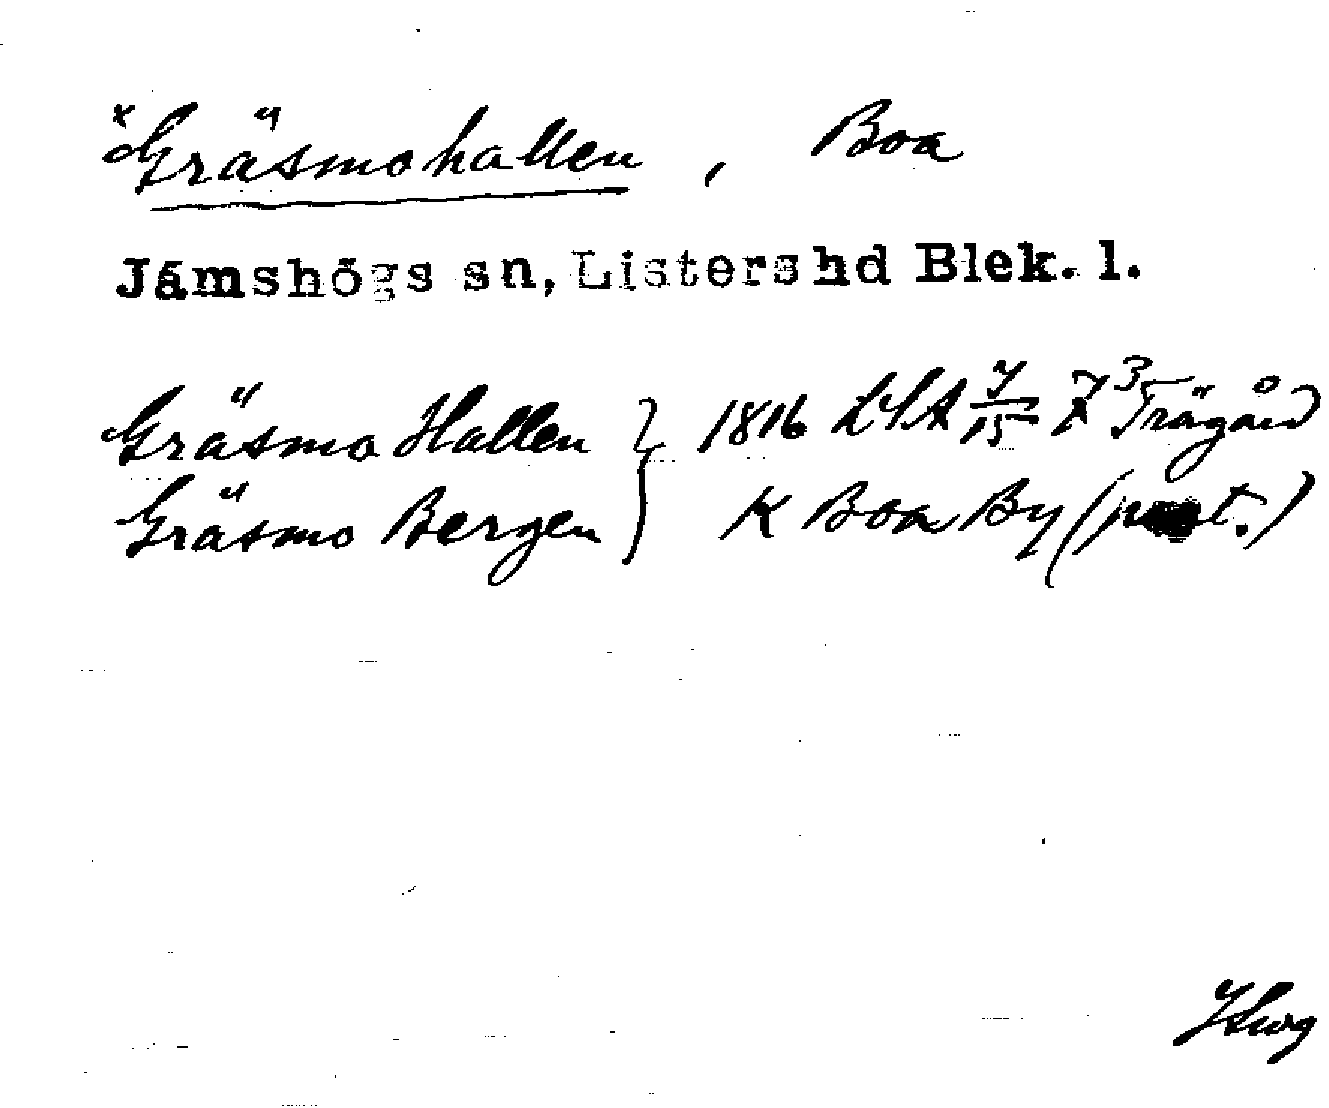 ˣGräsmohallen, Boa
Jämshögs sn, Listers hd Blek. l.
Gräsmo Hallen } 1816 LSA 7/15 Trägård
Gräsmo Bergen } K Boa By